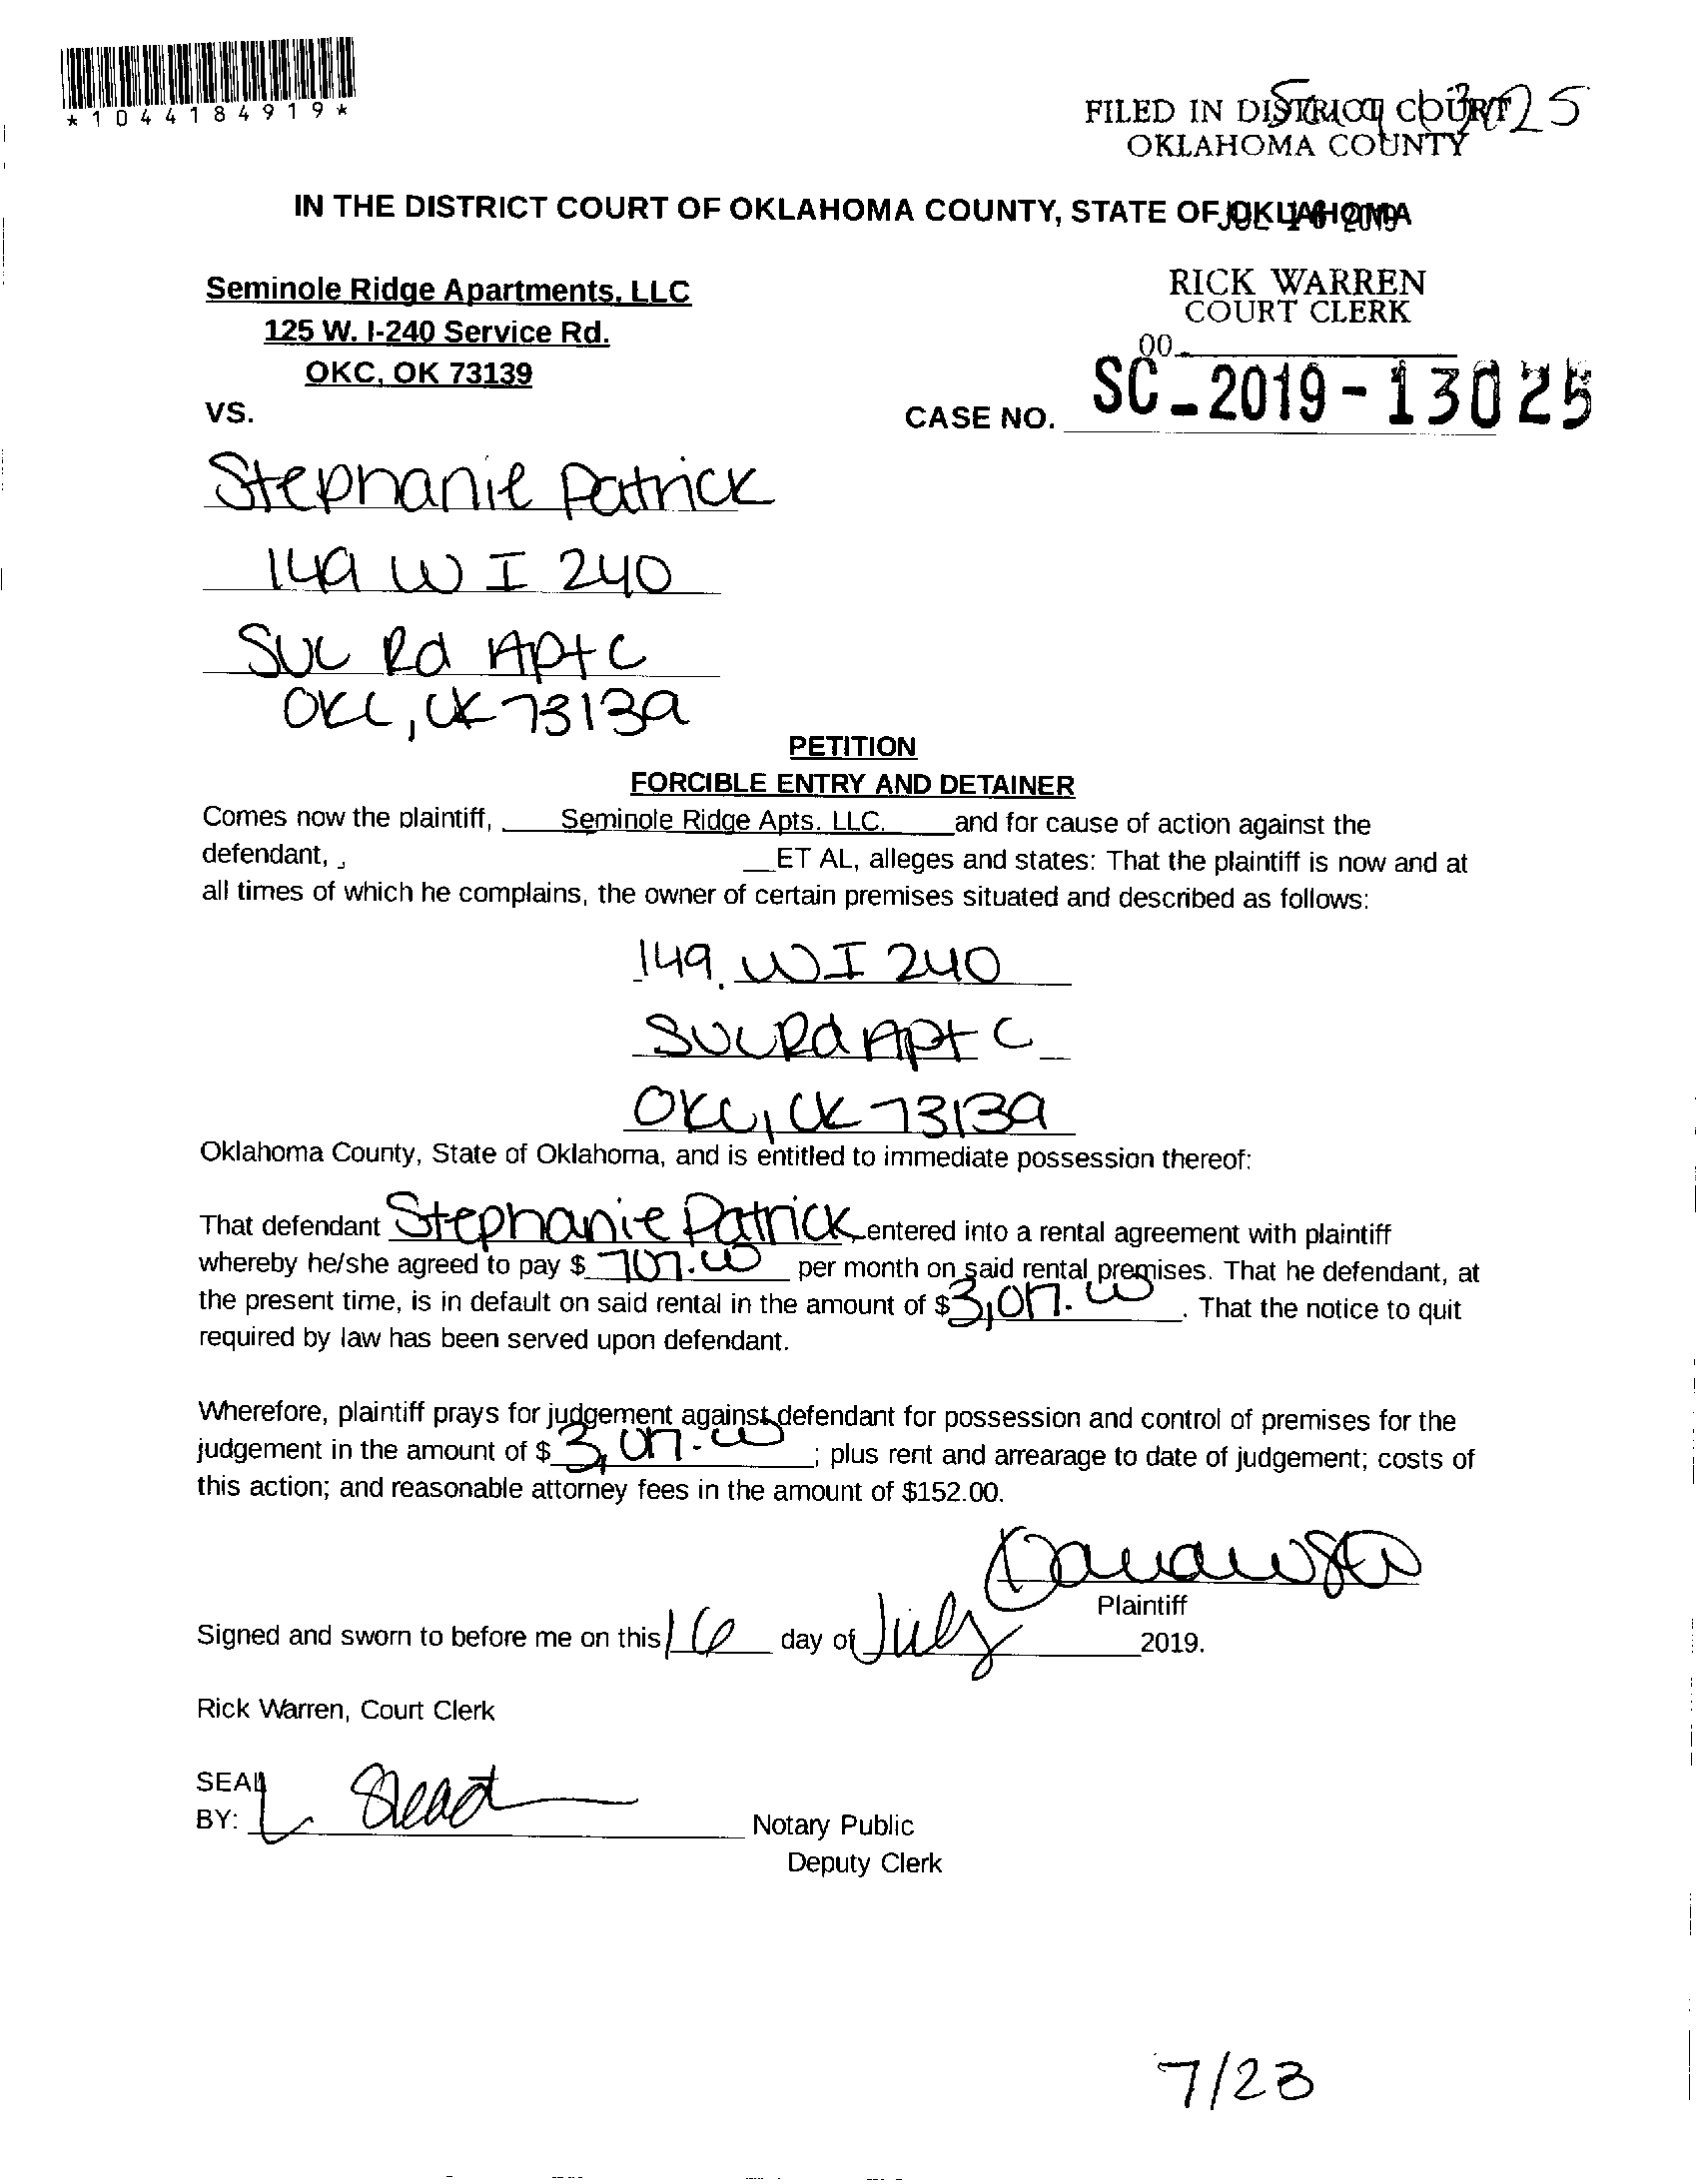 *1044184919*
FILED IN DISTRICT COURT
OKLAHOMA COUNTY
IN THE DISTRICT COURT OF OKLAHOMA COUNTY, STATE OF OKLAHOMA
JUL 16 2019
Seminole Ridge Apartments, LLC
125 W. I-240 Service Rd.
OKC, OK 73139
RICK WARREN
COURT CLERK
00
VS.
CASE NO. SC-2019-13025
Stephanie Patrick
149 W I 240
SVC Rd Apt C
OKC, OK 73139
PETITION
FORCIBLE ENTRY AND DETAINER
Comes now the plaintiff, Seminole Ridge Apts. LLC. and for cause of action against the
defendant, , ET AL, alleges and states: That the plaintiff is now and at
all times of which he complains, the owner of certain premises situated and described as follows:
149 W I 240
SVC Rd Apt C
OKC, OK 73139
Oklahoma County, State of Oklahoma, and is entitled to immediate possession thereof:
That defendant Stephanie Patrick, entered into a rental agreement with plaintiff
whereby he/she agreed to pay $ 707.00 per month on said rental premises. That he defendant, at
the present time, is in default on said rental in the amount of $ 3,017.00. That the notice to quit
required by law has been served upon defendant.
Wherefore, plaintiff prays for judgement against defendant for possession and control of premises for the
judgement in the amount of $ 3,017.00; plus rent and arrearage to date of judgement; costs of
this action; and reasonable attorney fees in the amount of $152.00.
Plaintiff
Signed and sworn to before me on this 16 day of July 2019.
Rick Warren, Court Clerk
SEAL
BY: Notary Public
Deputy Clerk
7/23